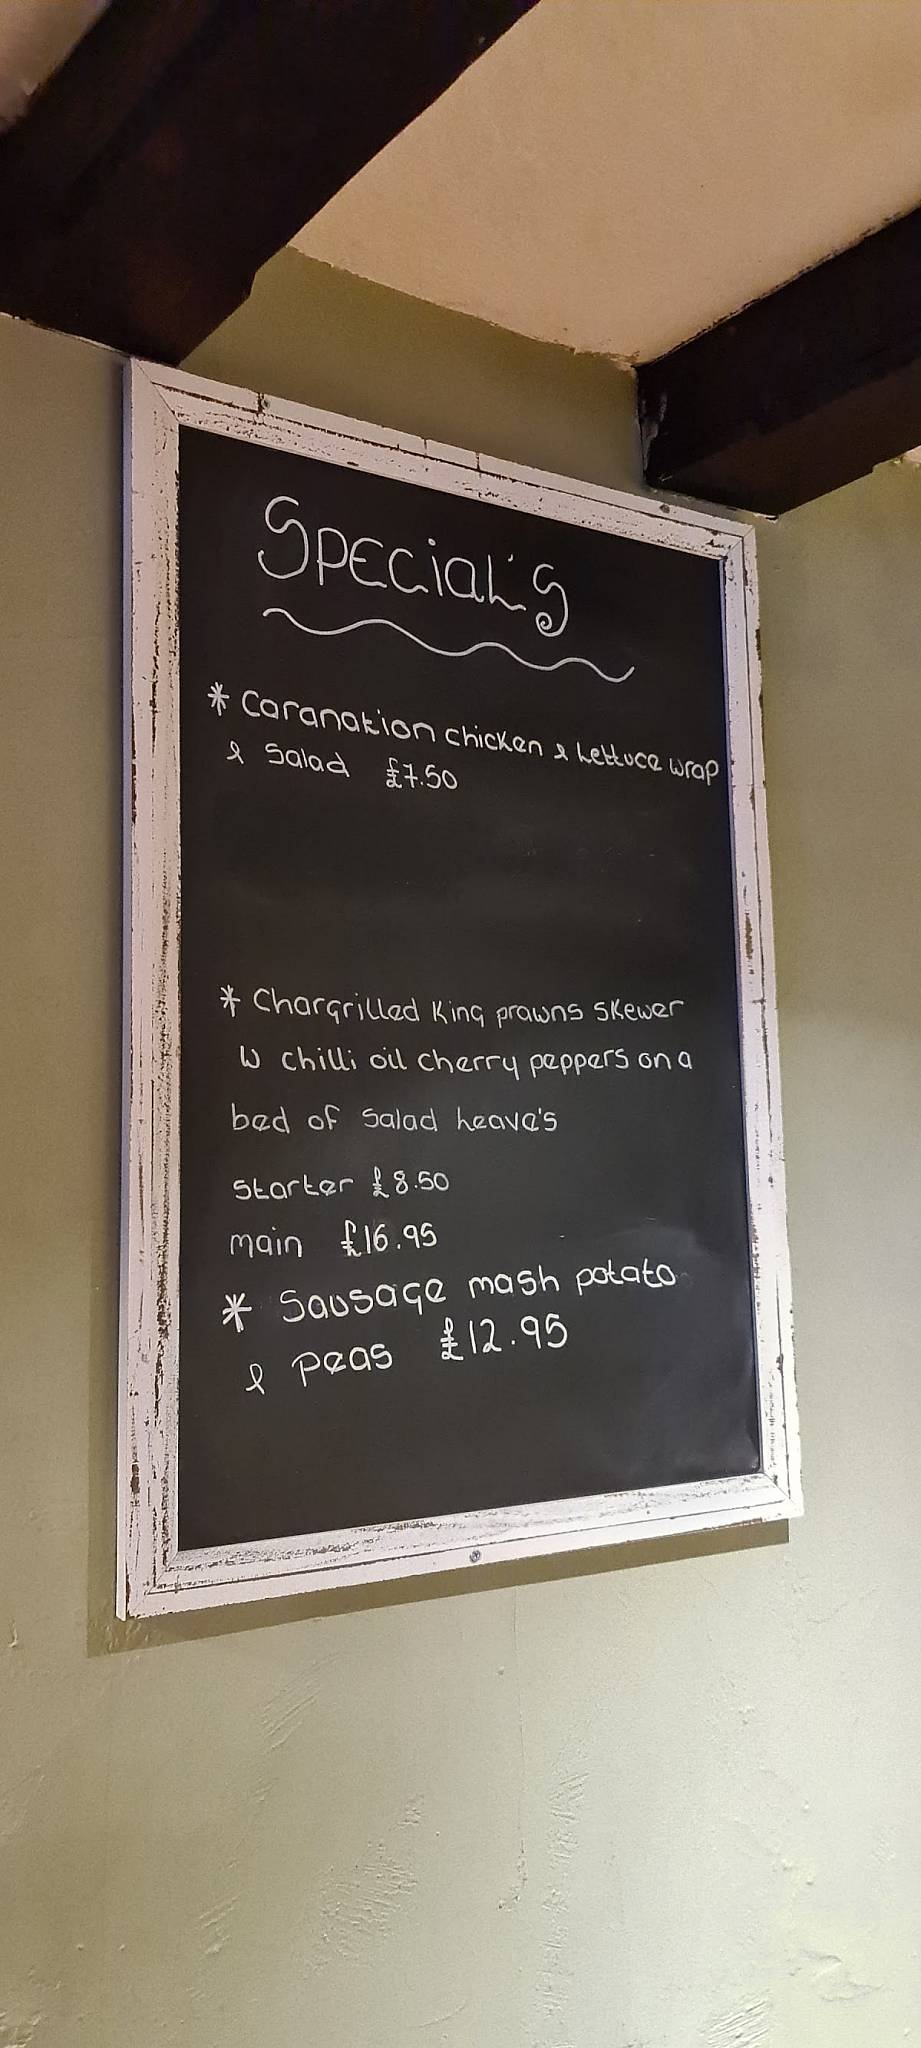 SPECial'S
* Caranation chicken & Lettuce wrap
& Salad £7.50
* Chargrilled King prawns skewer
W chilli oil cherry peppers on a
bed of salad heave's
Starter £8.50
main £16.95
* Sausage mash potato
& Peas £12.95